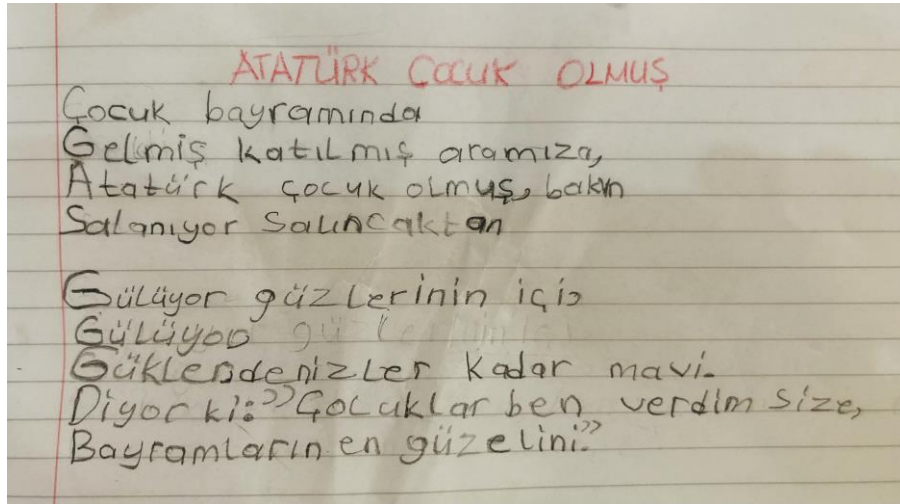 ATATÜRK ÇOCUK OLMUŞ
Çocuk bayramında
Gelmiş katılmış aramıza,
Atatürk çocuk olmuş, bakın
Salanıyor Salıncaktan
Gülüyor güzlerinin içi,
Gülüyoo güzlerinin içi
Güklerdenizler kadar mavi.
Diyor ki: "Çocuklar ben verdim size,
Bayramların en güzelini."